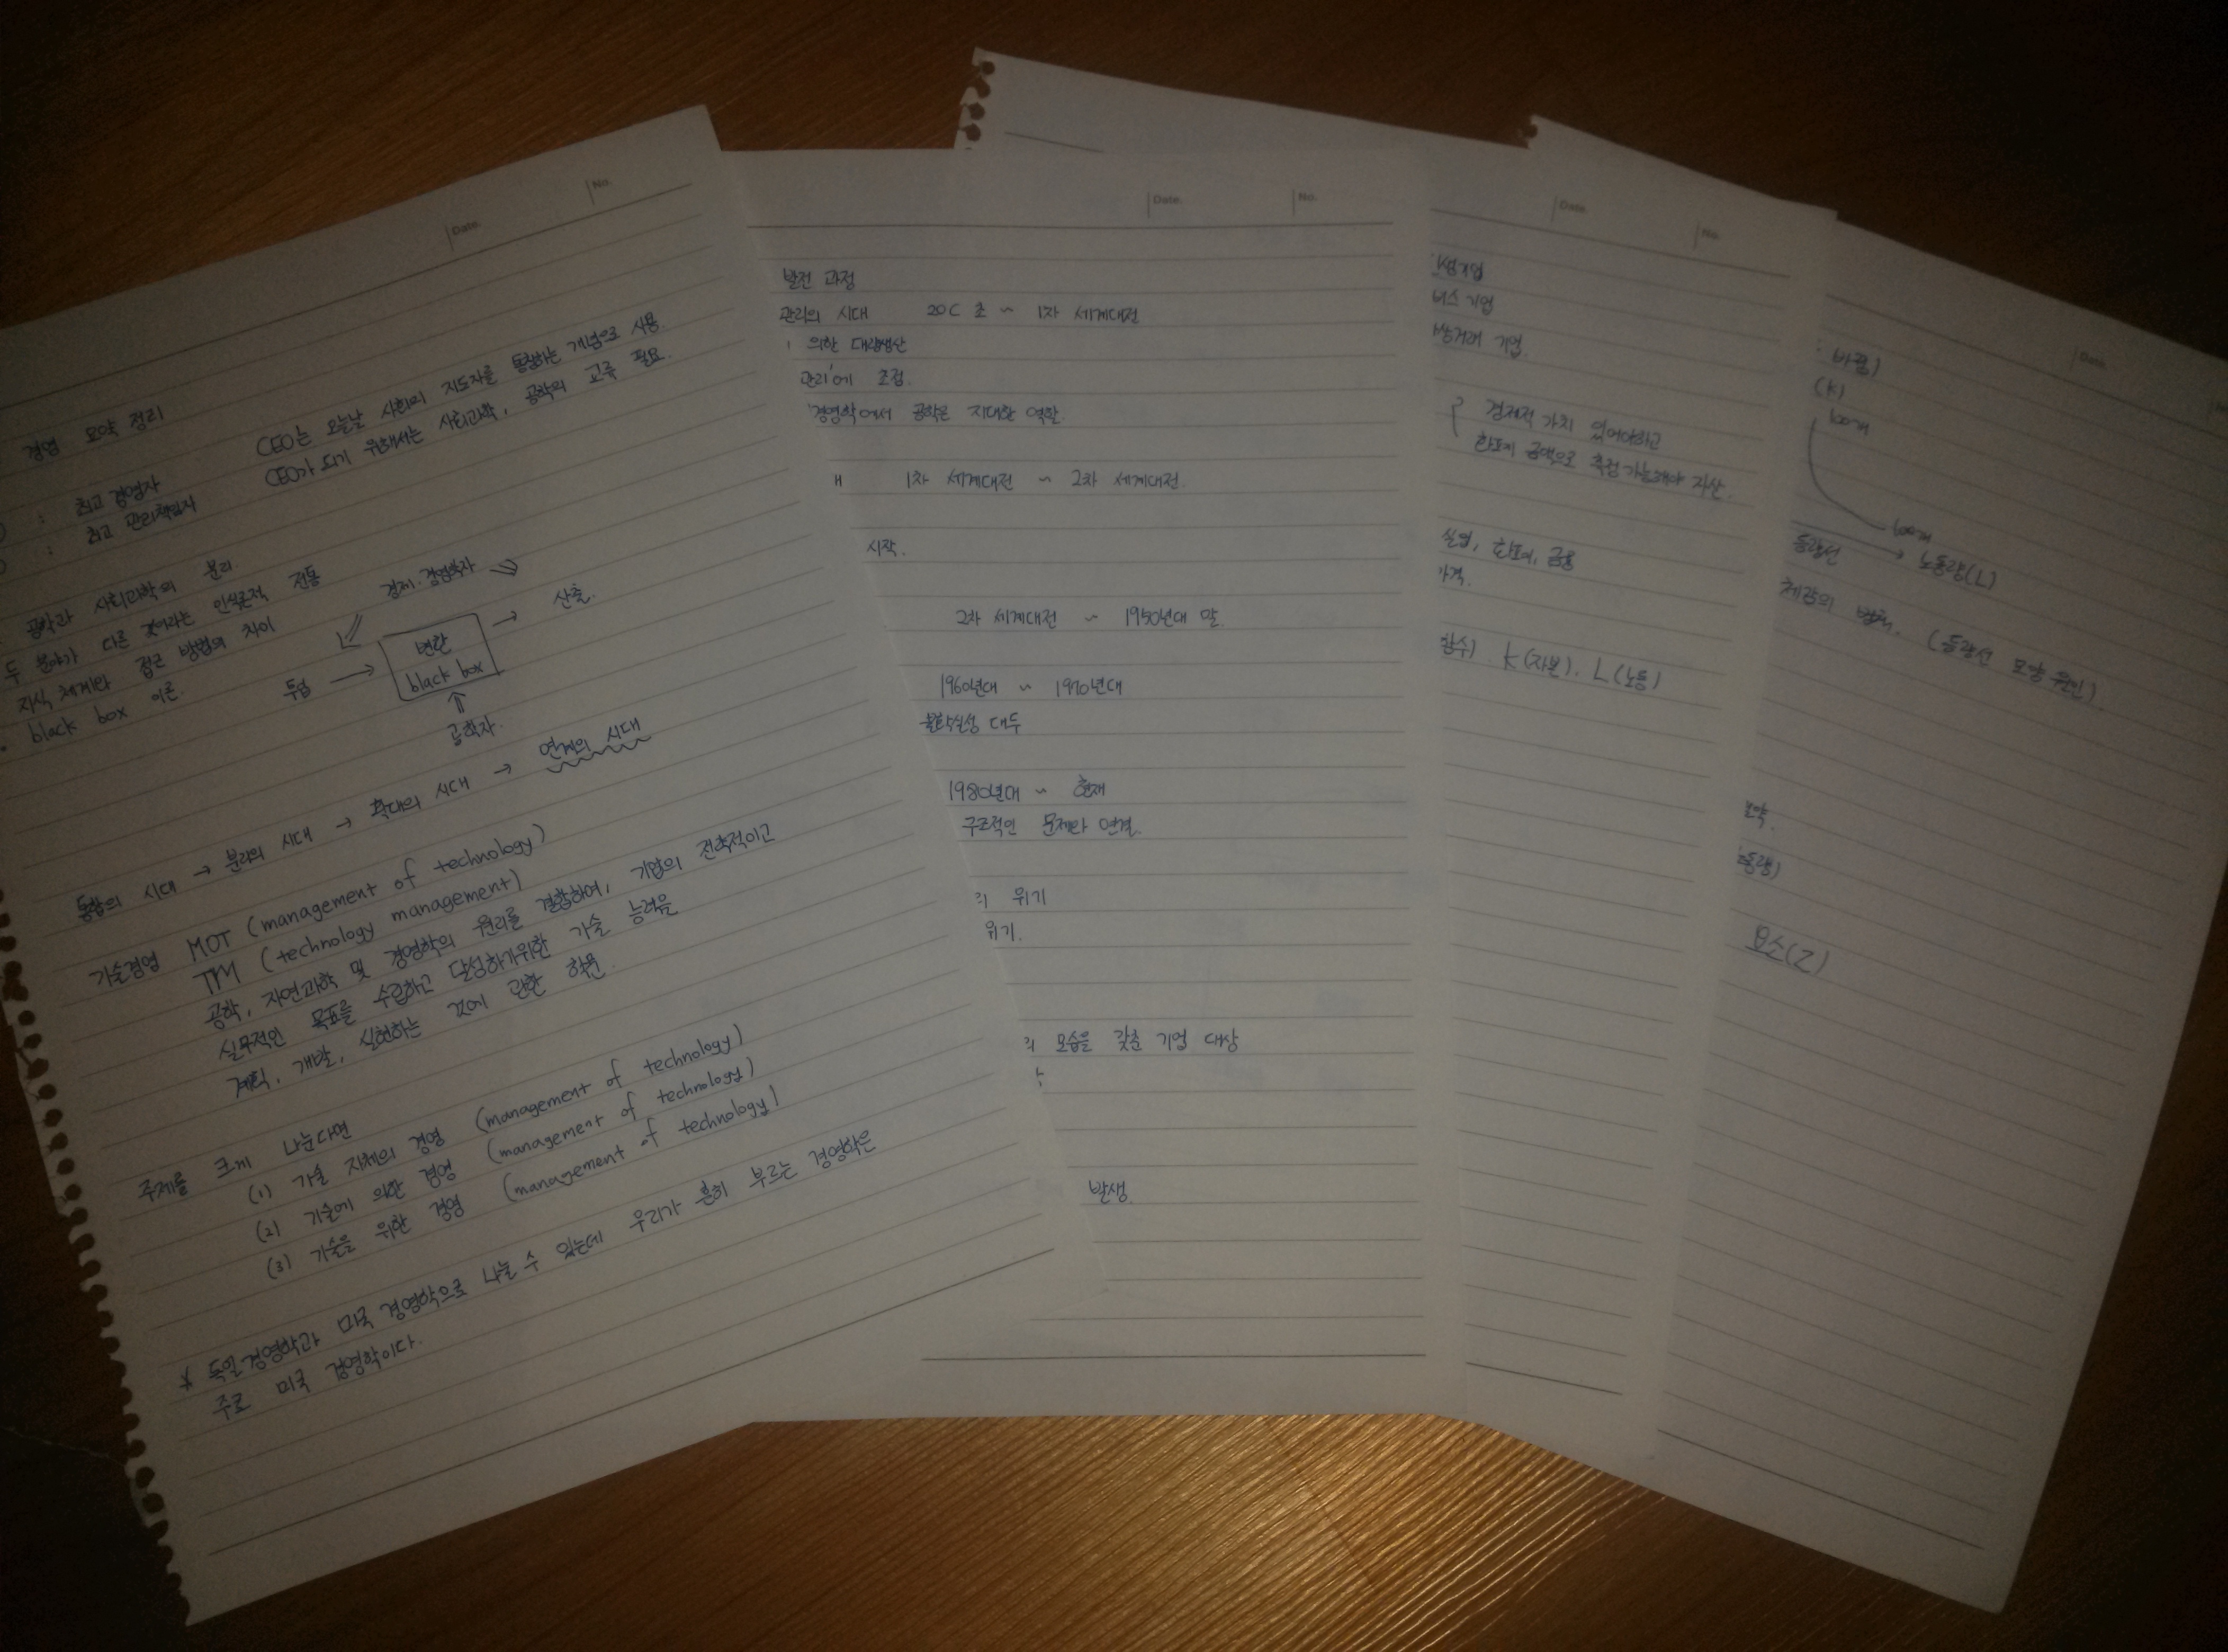 Date.
No.
경영 요약 정리
: 최고 경영자
: 최고 관리책임자
CEO는 오늘날 사회의 지도자를 통칭하는 개념으로 사용.
CEO가 되기 위해서는 사회과학, 공학의 교류 필요.
공학과 사회과학의 분리.
두 분야가 다른 것이라는 인식론적 전통
지식 체계와 접근 방법의 차이
black box 이론.
경제.경영학자
투입
변환
black box
산출.
공학자.
통합의 시대 → 분리의 시대 → 확대의 시대 → 연계의 시대
기술경영 MOT (management of technology)
TM (technology management)
공학, 자연과학 및 경영학의 원리를 결합하여, 기업의 전략적이고
실무적인 목표를 수립하고 달성하기위한 기술 능력을
계획, 개발, 실현하는 것에 관한 학문.
주제를 크게 나눈다면
(1) 기술 자체의 경영 (management of technology)
(2) 기술에 의한 경영 (management of technology)
(3) 기술을 위한 경영 (management of technology)
* 독일경영학과 미국 경영학으로 나눌 수 있는데 우리가 흔히 부르는 경영학은
주로 미국 경영학이다.
Date.
No.
발전 과정
관리의 시대 20C 초 ~ 1차 세계대전
의한 대량생산
관리'에 초점.
경영학에서 공학은 지대한 역할
1차 세계대전 ~ 2차 세계대전.
시작.
2차 세계대전 ~ 1950년대 말.
1960년대 ~ 1970년대
불확실성 대두
1980년대 ~ 현재
구조적인 문제와 연결.
위기
위기.
모습을 갖춘 기업 대상
발생.
Date.
No.
기업
비스 기업
상거래 기업.
경제적 가치 있어야하고
화폐 금액으로 측정가능해야 자산.
실업, 화폐, 금융
가격.
함수) K(자본). L(노동)
Date.
(K)
100개
100개
등량선
노동량(L)
체감의 법칙. (등량선 모양 원인)
요소(2)